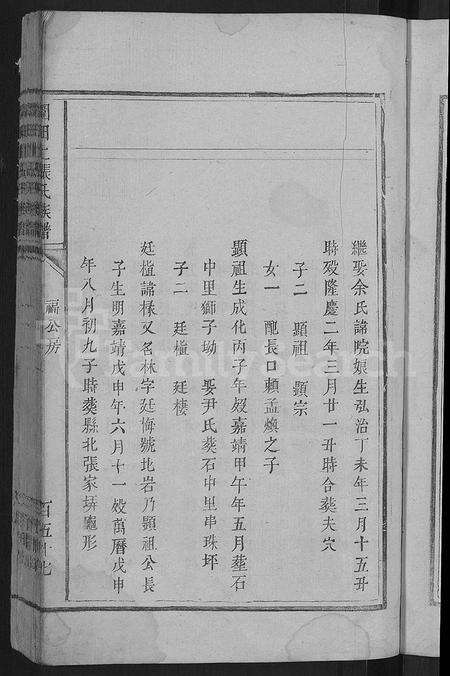 繼娶余氏諱院娘生弘治丁未年三月十五丑
時歿隆慶二年三月廿一丑時合葬夫穴
子二 顯祖 顯宗
女一 配長口賴孟煥之子
顯祖生成化丙子年歿嘉靖甲午年五月葬石
中里獅子坳 娶尹氏葬石中里串珠坪
子二 廷樌 廷棲
廷樌諱様又名林字廷悔號地岩乃顯祖公長
子生明嘉靖戊申年六月十一歿萬曆戊申
年八月初九子時葬縣北張家坊龜形
上張氏族譜
福公房
百五十七